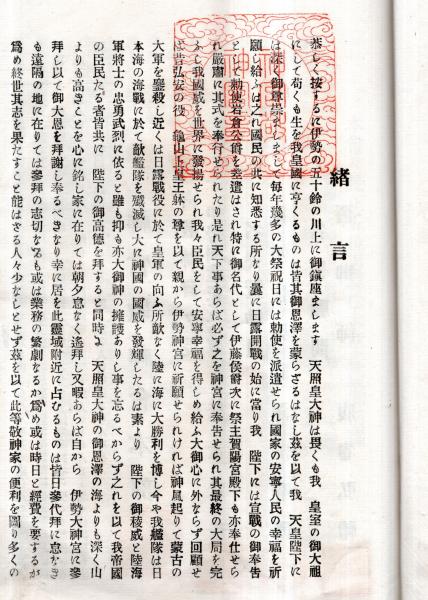 緒言
恭しく按するに伊勢の五十鈴の川上に御鎮座まします　天照皇大神は畏くも我　皇室の御大祖
にして苟くも生を我皇國に享くるものは皆其御恩澤を蒙らざるはなし茲を以て我　天皇陛下に
は深く御尊崇ましまして毎年幾多の大祭祝日には勅使を派遣せられ國家の安寧人民の幸福を祈
願し給ふは之れ國民の共に知悉する所なり曩に日露開戰の始に當り我　陛下には宣戰の御奉告
として勅使岩倉公爵を差遣はされ特に御名代として伊藤侯爵次に祭主賀陽宮殿下も亦奉仕せら
れ嚴肅に其式を奉行せられたり是れ天下事あらば必ず之を神宮に奉告せられ其最終の大局を完
ふし我國威を世界に發揚せられ我々臣民をして安寧幸福を得しめ給ふ大御心に外ならず回顧せ
は昔弘安の役　龜山上皇玉躰の尊を以て親から伊勢神宮に祈願せられければ神風起りて蒙古の
大軍を鏖殺し近くは日露戰役に於て皇軍の向ふ所敵なく陸に海に大勝利を博し今や我艦隊は日
本海の海戰に於て敵艦隊を殲滅し大に神國の國威を發輝したるは素より　陛下の御稜威と陸海
軍將士の忠勇武烈に依ると雖も抑も亦大御神の擁護ありし事を忘るべからず之れを以て我帝國
の臣民たる者皆共に　陛下の御高德を拜すると同時に　天照皇大神の御恩澤の海よりも深く山
よりも高きことを心に銘し家に在りては朝夕怠なく遙拜し又暇あらば自から　伊勢大神宮に參
拜し以て御大恩を拜謝し奉るべきなり幸に居を此靈域附近に占むるものは皆日參代拜に怠なき
も遠隔の地に在りては參拜の志切なるも或は業務の繁劇なるか爲め或は時日と經費を要するか
爲め終世其志を果たすこと能はざる人々少なしとせず茲を以て此等敬神家の便利を圖り多くの